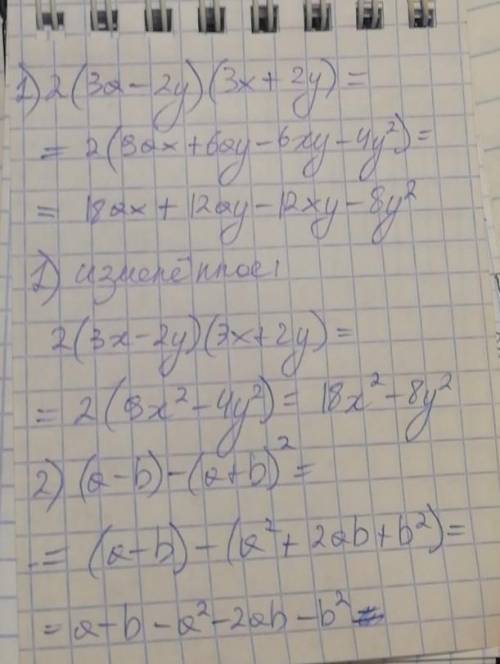 1) 2(3a-2y)(3x+2y)=
= 2(9ax+6ay-6xy-4y²)=
= 18ax+12ay-12xy-8y²
1) изменённое:
2(3x-2y)(3x+2y)=
= 2(9x²-4y²)= 18x²-8y²
2) (a-b)-(a+b)²=
= (a-b)-(a²+2ab+b²)=
= a-b-a²-2ab-b²